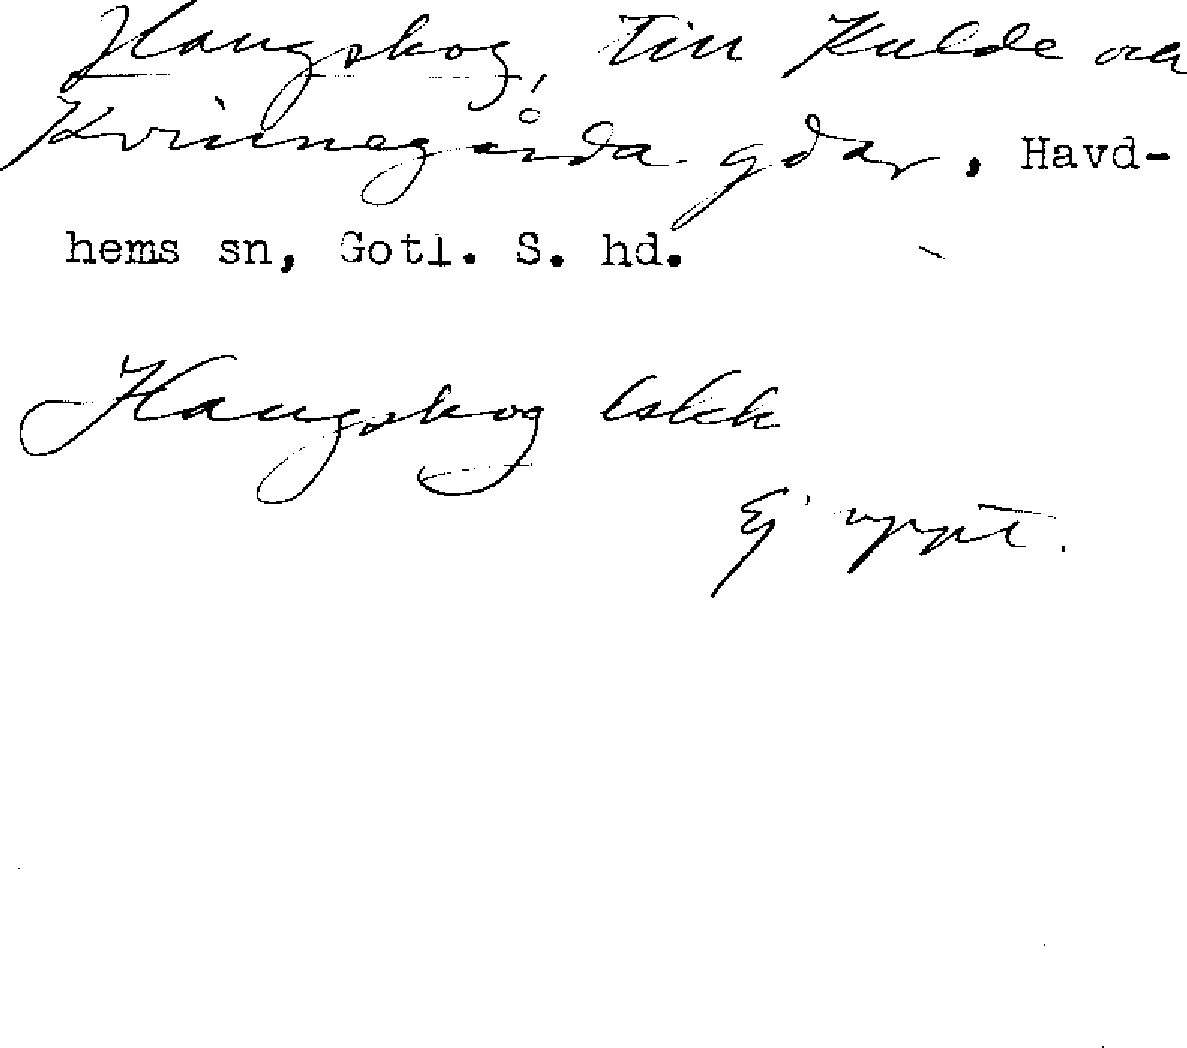 Haugskog, till Kulde o a
Kvinnegårda gdar, Havd-
hems sn, Gotl. S. hd.
Haugskog lskk
Ej uppt.